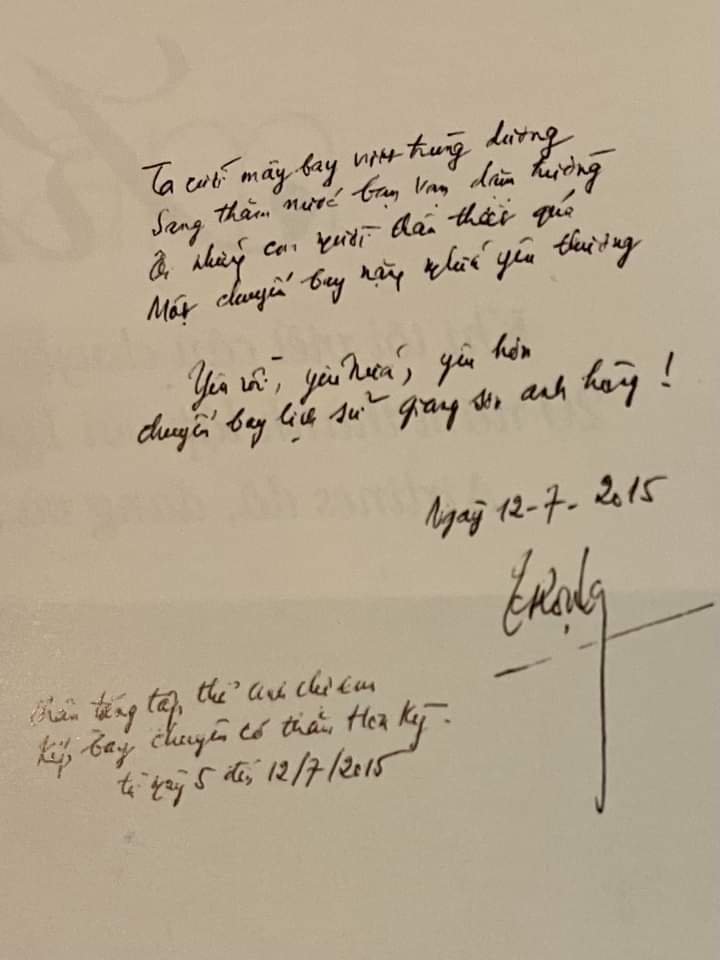 Ta cưỡi máy bay vượt trùng dương
Sang thăm nước bạn vạn dặm trường
Ôi những con người thân thiết quá
Một chuyến bay nặng nghĩa yêu thương
Yêu rồi, yêu nữa, yêu hơn
chuyến bay lịch sử giang sơn anh hùng!
Ngày 12-7-2015
Trọng
Thân tặng tập thể anh chị em
Kíp bay chuyên cơ thăm Hoa Kỳ.
từ ngày 5 đến 12/7/2015